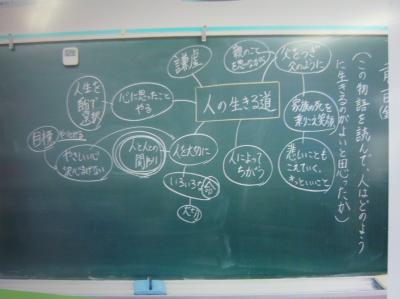 (この物語を読んで、人はどのよう
に生きるのがよいと思ったか)
人の生きる道
謙虚
親のこと
を思いながら
父をつぎ
父のように
家族の死を
乗りこえ笑顔
悲しいことも
こえていく。
きっといいこと
人によって
ちがう
人を大切に
いろいろな命
大切
人と人との
関わり
心に思ったこと
やる
人生を
選択
目標
やさしい心